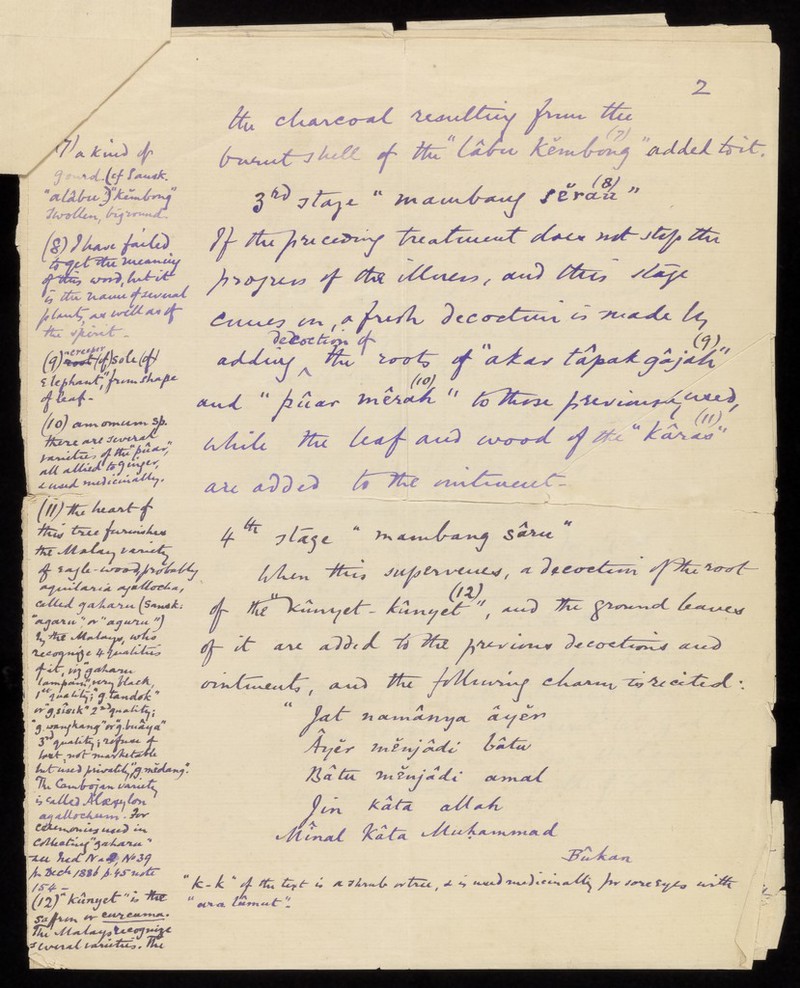 2
the charcoal resulting from the
burnt shell of the "lâbu kĕmbong" (7) added to it.
3rd stage "mambang sĕrau" (8)
If the preceding treatment does not stop the
progress of the illness, and this stage
comes on, a fresh decoction is made by
adding decoction of the roots of "akar tâpak gâjah" (9)
and "pûar mêrah" (10) to those previously used,
while the leaf and wood of the "kâras" (11)
are added to the ointment-
4th stage "mambang sâru"
When this supervenes, a decoction of the root
of the "kûnyet-kûnyet" (12), and the ground leaves
of it are added to the previous decoctions and
ointments, and the following charm is recited:
"Jat namânya âyĕr
Âyĕr mĕnjâdi bâtu
Bâtu mĕnjâdi amal
Jin kâta allah
Mînal kâta Muḥammad
Bûkan
(7) a kind of
gourd. (cf Sansk.
"alâbu") "kĕmbong"
swollen, big round-
(8) I have failed
to get the meaning
of this word, but it
is the name of several
plants, as well as of
the spirit-
(9) "creeper (of) sole (of)
elephant", from shape
of leaf-
(10) amomum sp.
there are several
varieties of the "pûar",
all allied to ginger,
& used medicinally.
(11) the heart of
this tree furnishes
the Malay variety
of eagle-wood, probably
aquilaria agallocha,
called gaharu (Sansk:
"agaru" or "aguru")
by the Malays, who
recognize 4 qualities
of it, viz "gaharu
lampam", very black,
1st quality; "g. tandok"
or "g. sîsik" 2nd quality;
"g. wangkang" or "g. buâya"
3rd quality; refuse of
last, not marketable
but used privately, "g. mĕdang".
The Cambojan variety
is called Aloexylon
agallochum. For
ceremonies used in
collecting "gaharu"
see Ind. N & Q, No 39
for Decr 1886 p. 45 note
154-
(12) "kûnyet" is the
saffron or curcuma.
The Malays recognize
several varieties. The
"k-k" of the text is a shrub or tree, & is used medicinally for sore eyes with
"ara lûmut".